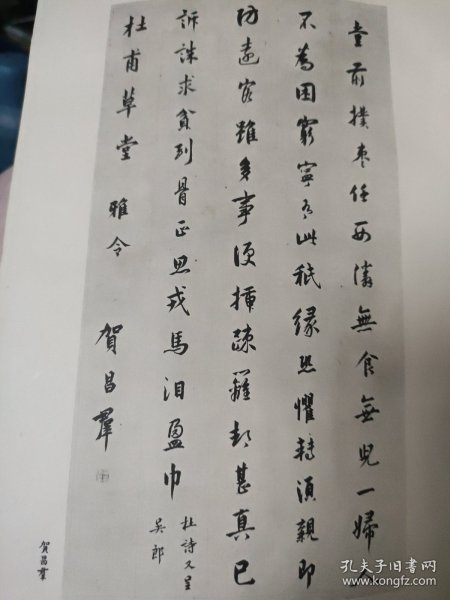 堂前撲棗任西隣無食無兒一婦人
不為困窮寧有此秖緣恐懼轉須親即
防遠客雖多事便插疎籬却甚真已
訴誅求貧到骨正思戎馬泪盈巾
杜詩又呈
吳郎
杜甫草堂 雅令
賀昌羣
賀昌羣
孔夫子旧书网
www.kongfz.com